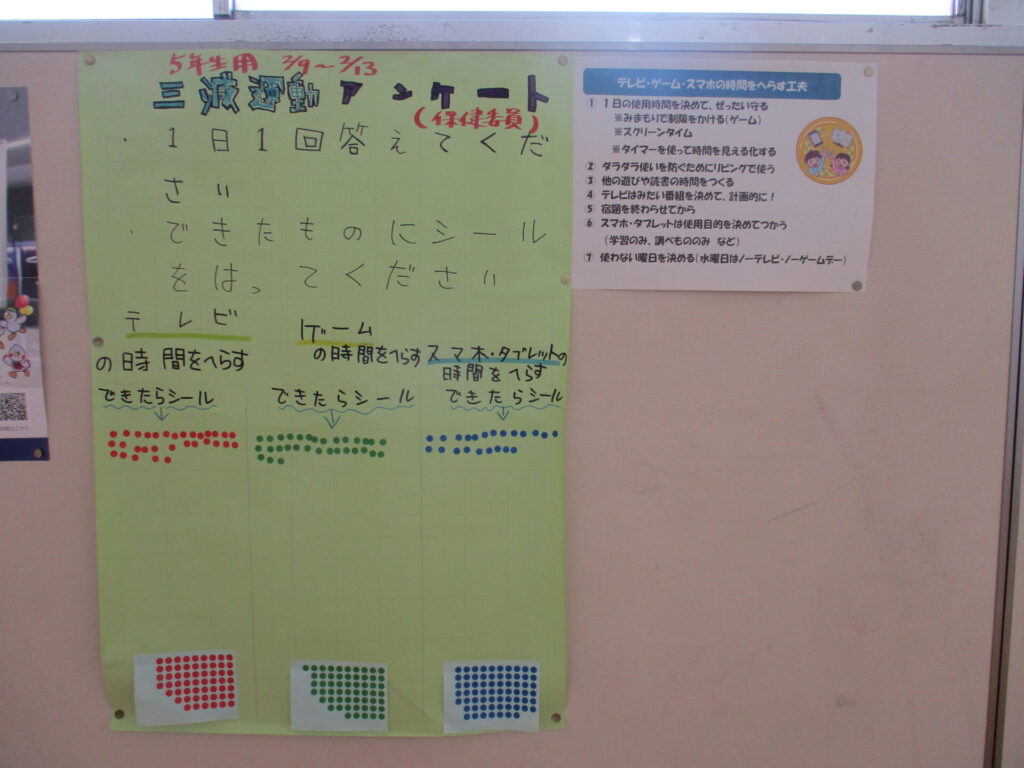 5年生用 3/9〜3/13
三減運動アンケート
(保健委員)
・1日1回答えてくだ
さい
・できたものにシール
をはってください
テレビ
の時間をへらす
ゲーム
の時間をへらす
スマホ・タブレットの
時間をへらす
できたらシール
できたらシール
できたらシール
テレビ・ゲーム・スマホの時間をへらす工夫
① 1日の使用時間を決めて、ぜったい守る
※みまもりで制限をかける(ゲーム)
※スクリーンタイム
※タイマーを使って時間を見える化する
② ダラダラ使いを防ぐためにリビングで使う
③ 他の遊びや読書の時間をつくる
④ テレビはみたい番組を決めて、計画的に!
⑤ 宿題を終わらせてから
⑥ スマホ・タブレットは使用目的を決めてつかう
(学習のみ、調べもののみ など)
⑦ 使わない曜日を決める(水曜日はノーテレビ・ノーゲームデー)